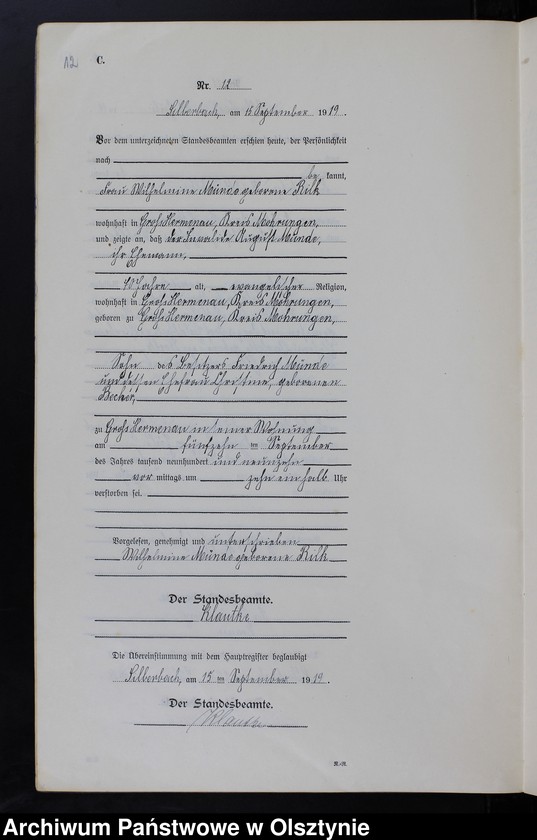 12
C.
Nr. 12
Silberbach, am 15 September 1919.
Vor dem unterzeichneten Standesbeamten erschien heute, der Persönlichkeit
nach
be kannt,
Frau Wilhelmine Mündo geborene Bilk
wohnhaft in Groß Hermenau, Kreis Mohrungen,
und zeigte an, daß der Invalide August Mundo,
ihr Ehemann,
Jahre alt, evangelischer Religion,
wohnhaft in Groß Hermenau, Kreis Mohrungen,
geboren zu Groß Hermenau, Kreis Mohrungen,
Sohn des Besitzers Friedrich Mündo
und dessen Ehefrau Christine, geborenen
Becher,
zu Groß Hermenau in seiner Wohnung
am fünfzehn ten September
des Jahres tausend neunhundert und neunzehn
vor mittags um zehn einhalb Uhr
verstorben sei.
Vorgelesen, genehmigt und unterschrieben
Wilhelmine Mündo geborene Bilk
Der Standesbeamte.
Klautke
Die Übereinstimmung mit dem Hauptregister beglaubigt
Silberbach, am 15 ten September 1919.
Der Standesbeamte.
Klautke
Archiwum Państwowe w Olsztynie